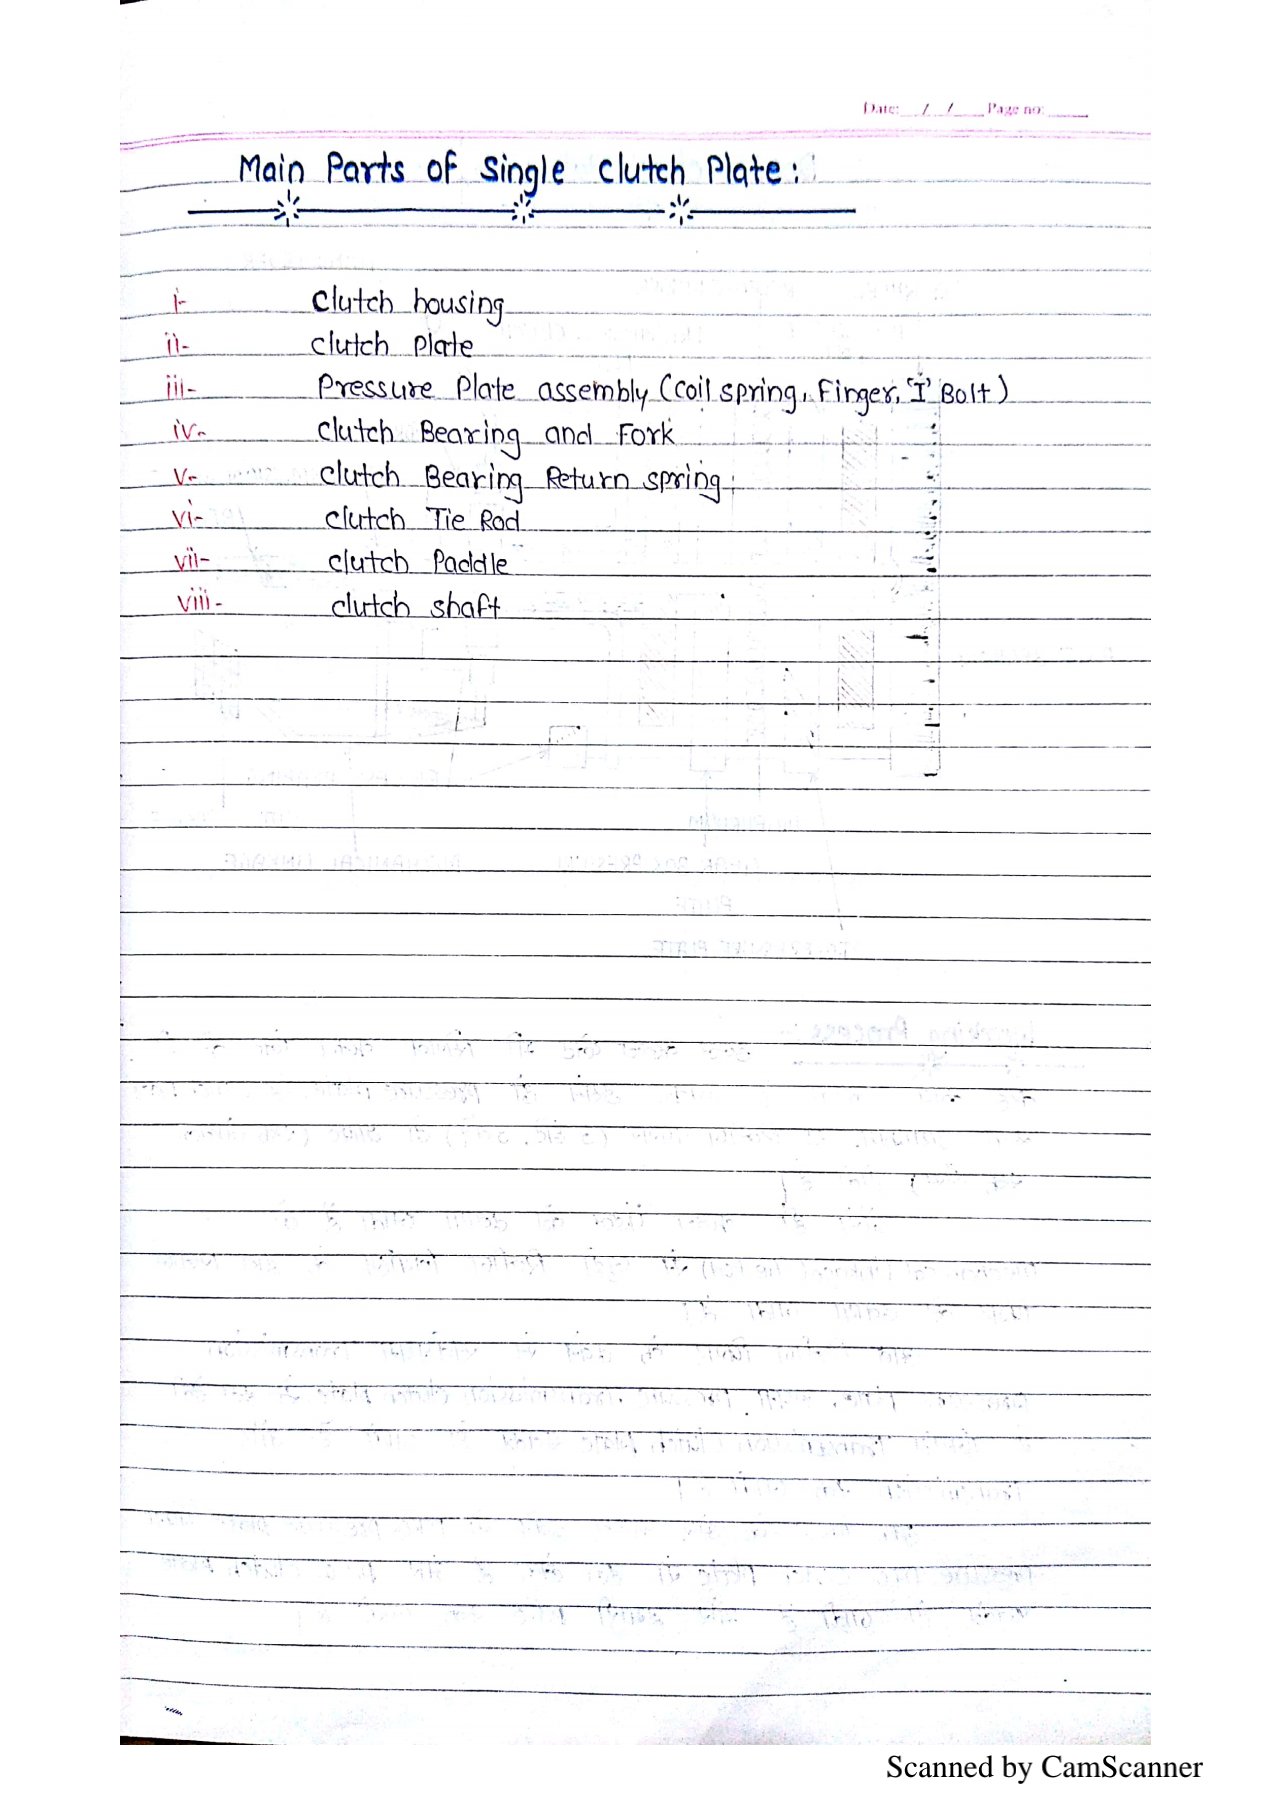 Date: / / Page no:
Main Parts of Single Clutch Plate:
i- Clutch housing
ii- clutch Plate
iii- Pressure Plate assembly (coil spring, Finger, 'I' Bolt)
iv- clutch Bearing and Fork
v- clutch Bearing Return spring
vi- clutch Tie Rod
vii- clutch Paddle
viii- clutch shaft
Scanned by CamScanner